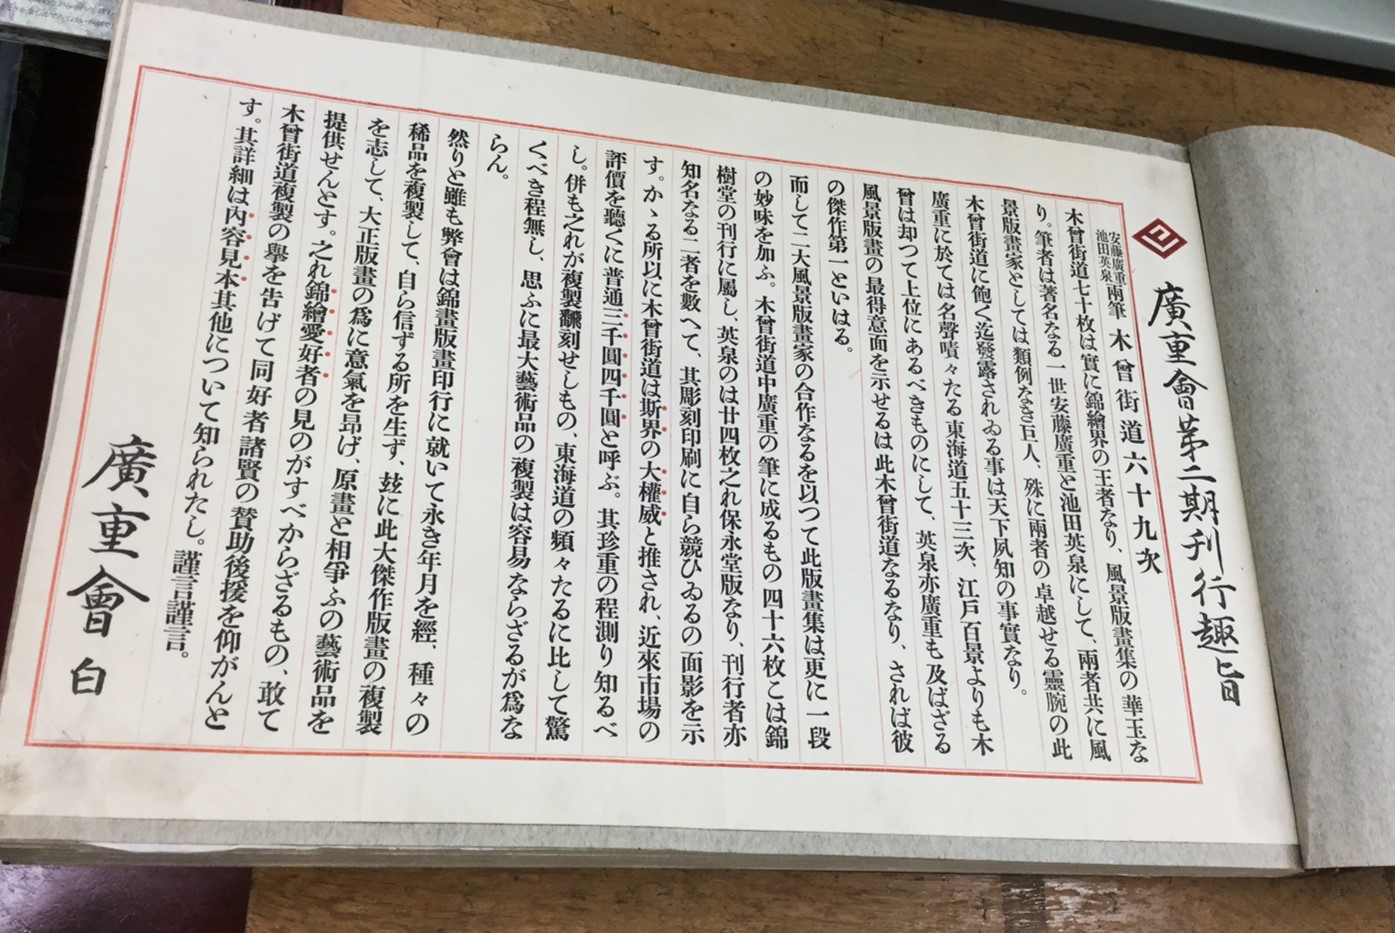 廣重會第二期刊行趣旨
安藤廣重
池田英泉
兩筆 木曾街道六十九次
木曾街道七十枚は實に錦繪界の王者なり、風景版畫集の華玉な
り。筆者は著名なる一世安藤廣重と池田英泉にして、兩者共に風
景版畫家としては類例なき巨人、殊に兩者の卓越せる靈腕の此
木曾街道に飽く迄發露されゐる事は天下夙知の事實なり。
廣重に於ては名聲嘖々たる東海道五十三次、江戸百景よりも木
曾は却つて上位にあるべきものにして、英泉亦廣重も及ばざる
風景版畫の最得意面を示せるは此木曾街道なるなり、されば彼
の傑作第一といはる。
而して二大風景版畫家の合作なるを以つて此版畫集は更に一段
の妙味を加ふ。木曾街道中廣重の筆に成るもの四十六枚こは錦
樹堂の刊行に屬し、英泉のは廿四枚之れ保永堂版なり、刊行者亦
知名なる二者を數へて、其彫刻印刷に自ら競ひゐるの面影を示
す。かゝる所以に木曾街道は斯界の大權威と推され、近來市場の
評價を聽くに普通三千圓四千圓と呼ぶ。其珍重の程測り知るべ
し。併も之れが複製飜刻せしもの、東海道の頻々たるに比して驚
くべき程無し、思ふに最大藝術品の複製は容易ならざるが爲な
らん。
然りと雖も弊會は錦畫版畫印行に就いて永き年月を經、種々の
稀品を複製して、自ら信ずる所を生ず、玆に此大傑作版畫の複製
を志して、大正版畫の爲に意氣を昂げ、原畫と相爭ふの藝術品を
提供せんとす。之れ錦繪愛好者の見のがすべからざるもの、敢て
木曾街道複製の擧を告げて同好者諸賢の賛助後援を仰がんと
す。其詳細は內容見本其他について知られたし。謹言謹言。
廣重會白